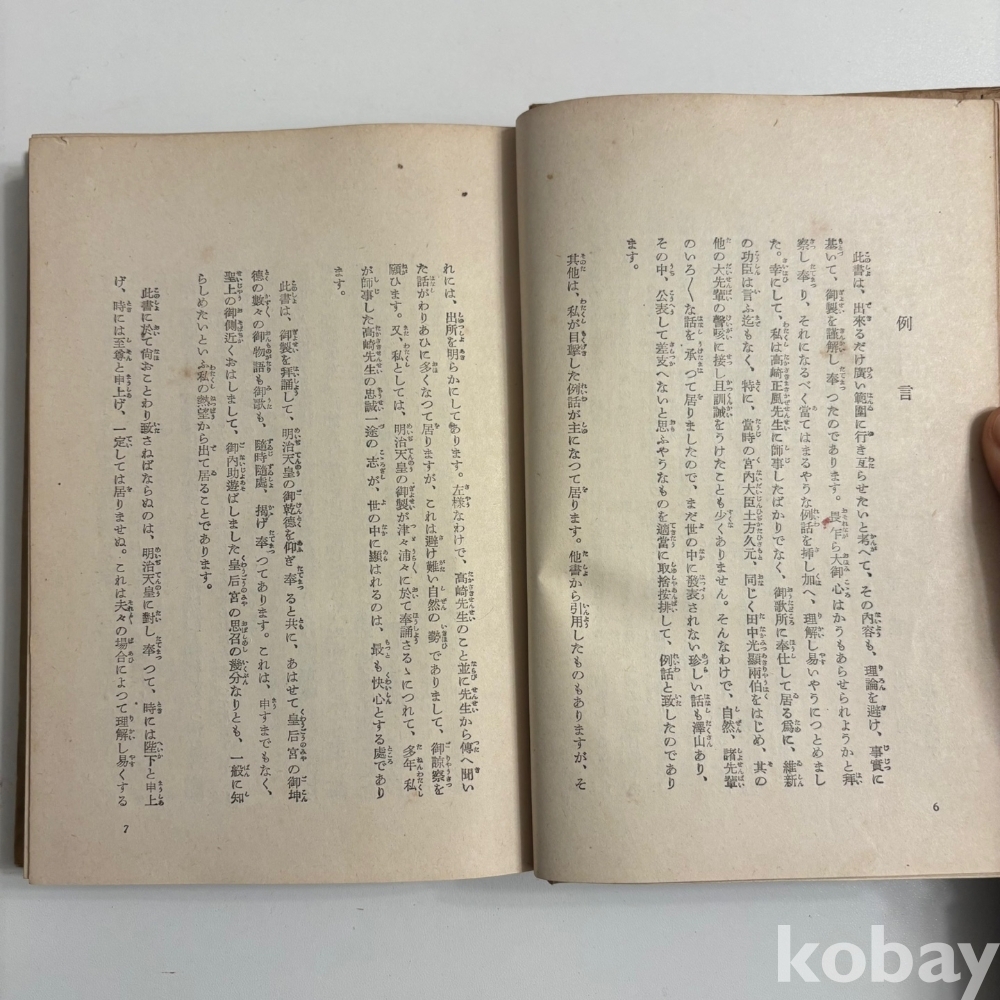 例言
此書は、出來るだけ廣い範圍に行き亙らせたいと考へて、その內容も、理論を避け、事實に
基いて、御製を謹解し奉つたのであります。畏乍ら大御心はかうもあらせられようかと拜
察し奉り、それになるべく當てはまるやうな例話を挿し加へ、理解し易いやうにつとめまし
た。幸にして、私は高崎正風先生に師事したばかりでなく、御歌所に奉仕して居る爲に、維新
の功臣は言ふ迄もなく、特に、當時の宮內大臣土方久元、同じく田中光顯兩伯をはじめ、其の
他の大先輩の謦咳に接し且訓誡をうけたことも少くありません。そんなわけで、自然、諸先輩
のいろ〱な話を承つて居りましたので、まだ世の中に發表されない珍しい話も澤山あり、
その中、公表して差支へないと思ふやうなものを適當に取捨按排して、例話と致したのであり
ます。
其他は、私が目擊した例話が主になつて居ります。他書から引用したものもありますが、そ
6
れには、出所を明らかにしてあります。左樣なわけで、高崎先生のこと並に先生から傳へ聞い
た話がわりあひに多くなつて居りますが、これは避け難い自然の勢でありまして、御諒察を
願ひます。又、私としては、明治天皇の御製が津々浦々に於て奉誦さるゝにつれて、多年私
が師事した高崎先生の忠誠一途の志が、世の中に顯はれるのは、最も快心とする處であり
ます。
此書は、御製を拜誦して、明治天皇の御乾德を仰ぎ奉ると共に、あはせて皇后宮の御坤
德の數々の御物語も御歌も、隨時隨處、揭げ奉つてあります。これは、申すまでもなく、
聖上の御側近くおはしまして、御內助遊ばしました皇后宮の思召の幾分なりとも、一般に知
らしめたいといふ私の熱望から出て居ることであります。
此書に於て尙おことわり致さねばならぬのは、明治天皇に對し奉つて、時には陛下と申上
げ、時には至尊と申上げ、一定しては居りませぬ。これは夫々の場合によつて理解し易くする
7
kobay